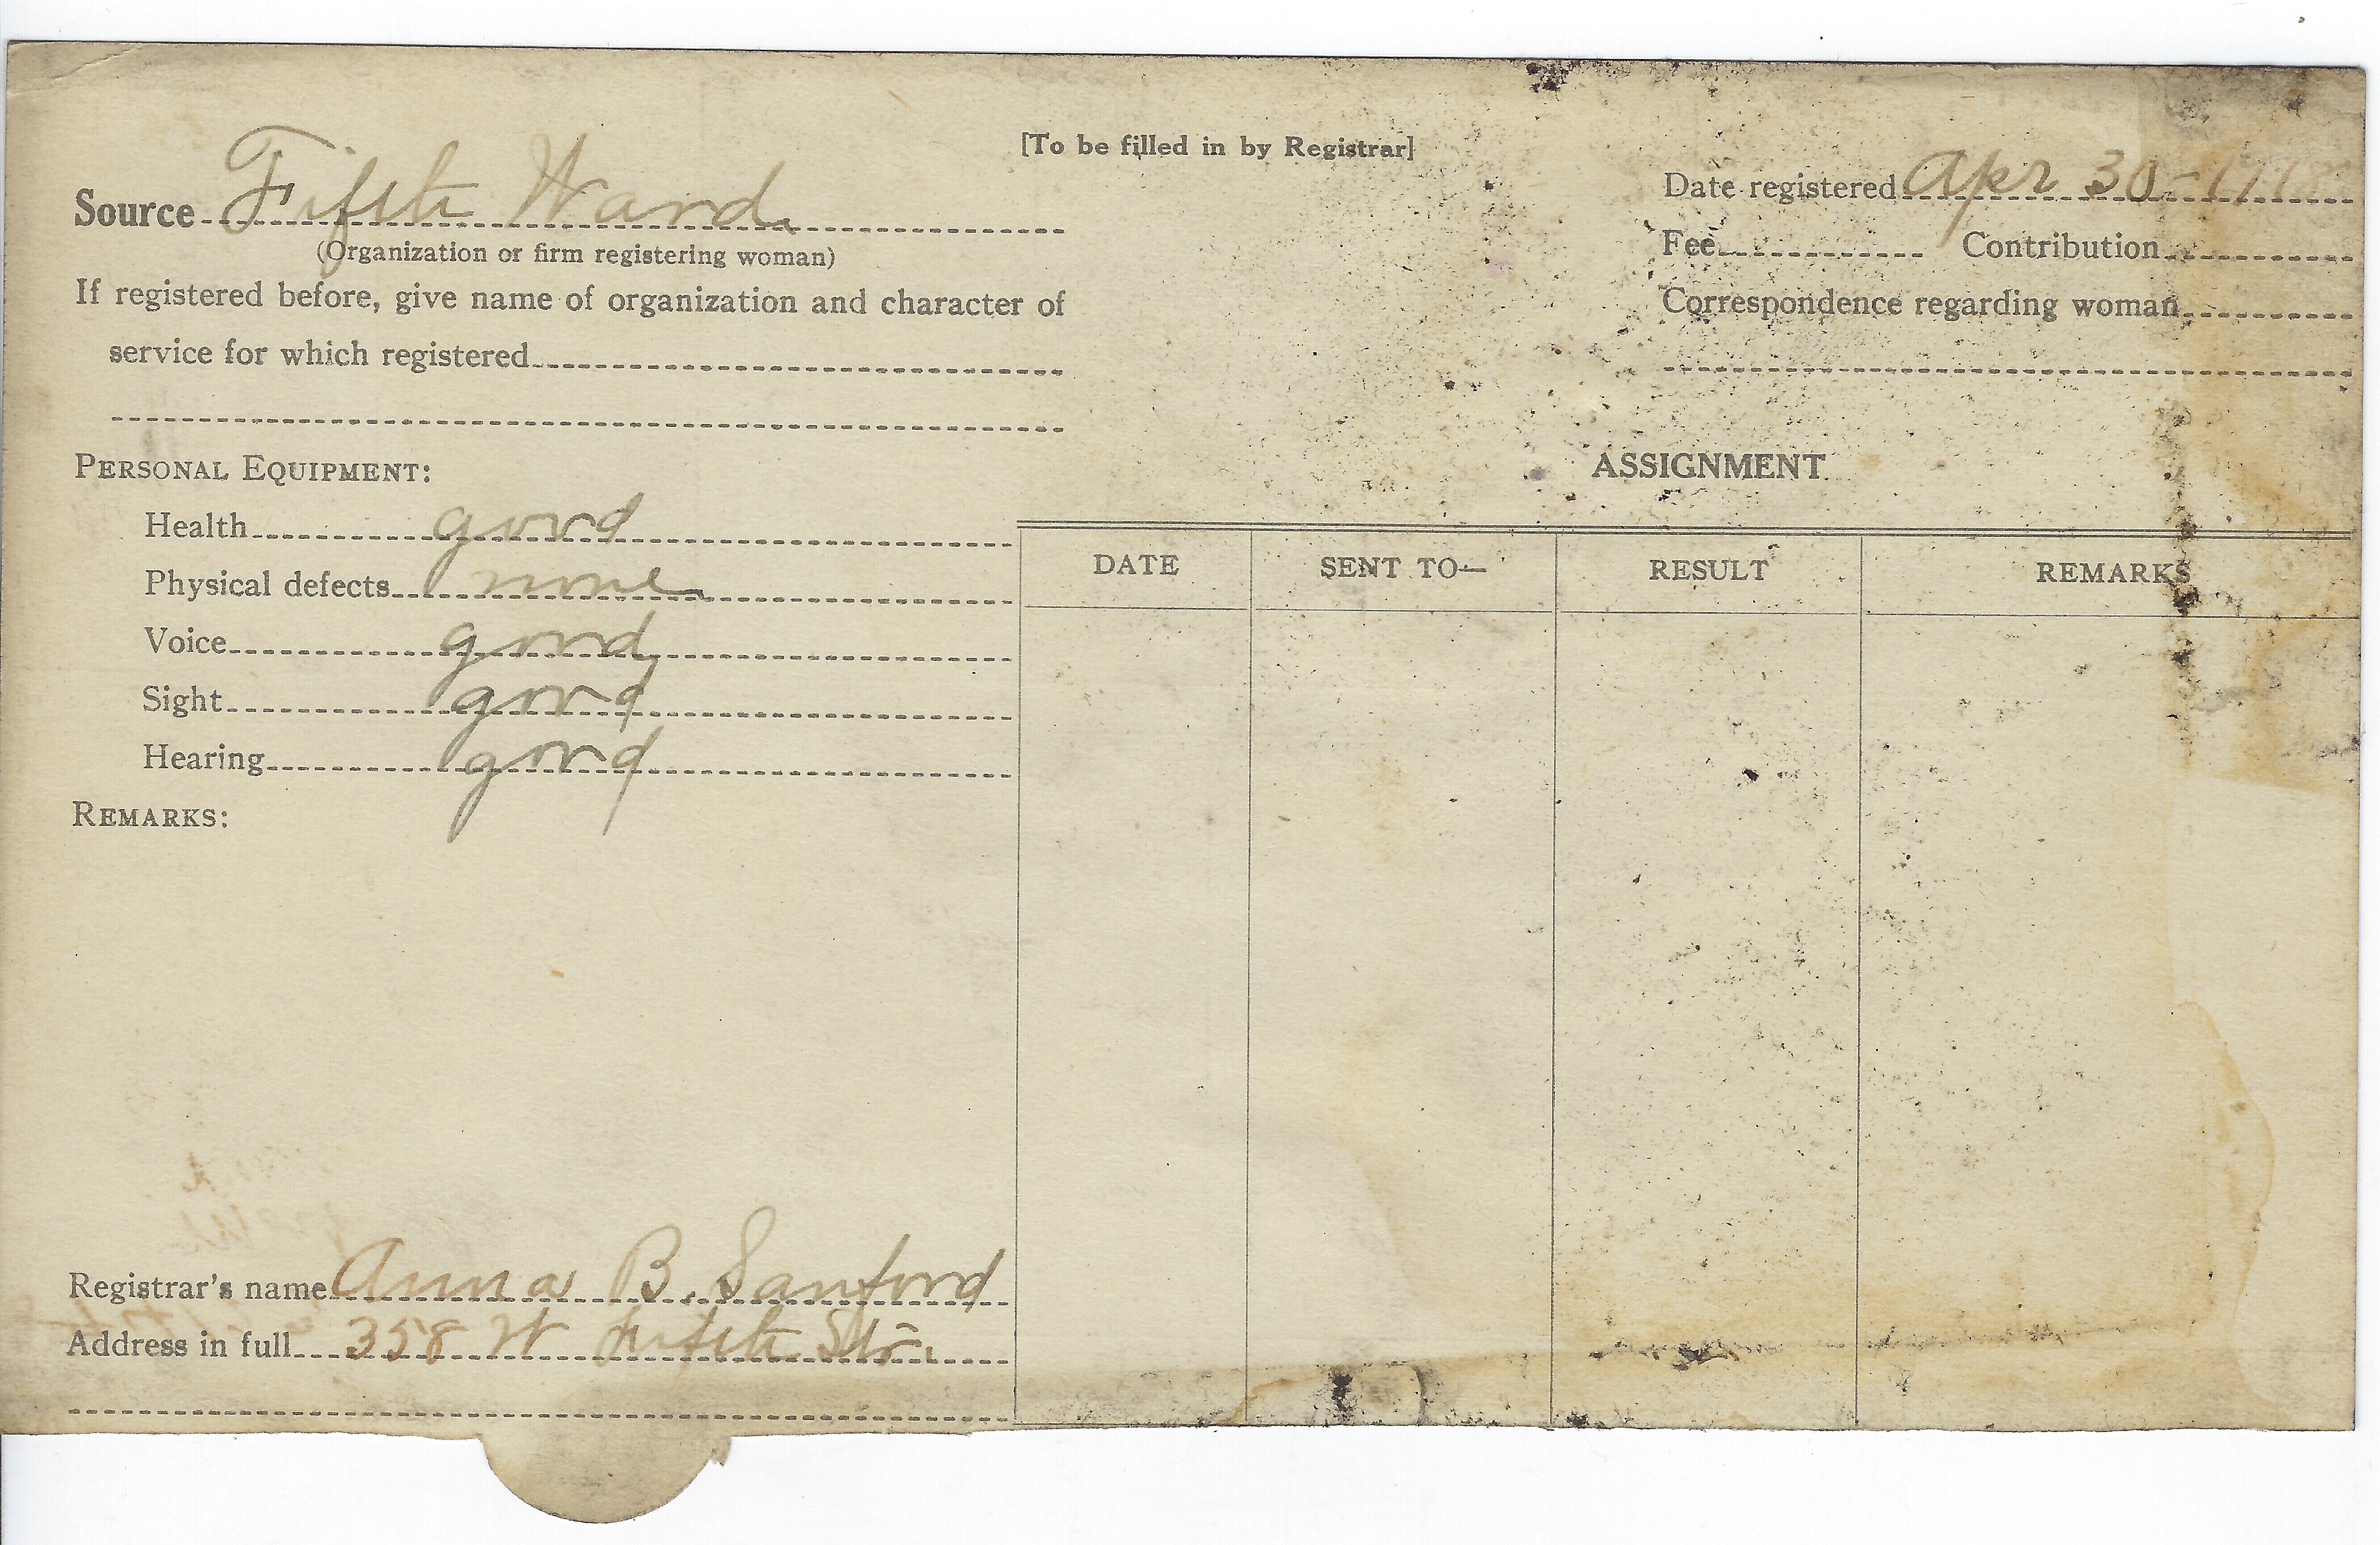 [To be filled in by Registrar]
Source Fifth Ward
(Organization or firm registering woman)
If registered before, give name of organization and character of
service for which registered
Date registered Apr 30-1918
Fee Contribution
Correspondence regarding woman
PERSONAL EQUIPMENT:
Health good
Physical defects none
Voice good
Sight good
Hearing good
REMARKS:
Registrar's name Anna B. Sanford
Address in full 358 W Fifth Str.
ASSIGNMENT
DATE SENT TO— RESULT REMARKS